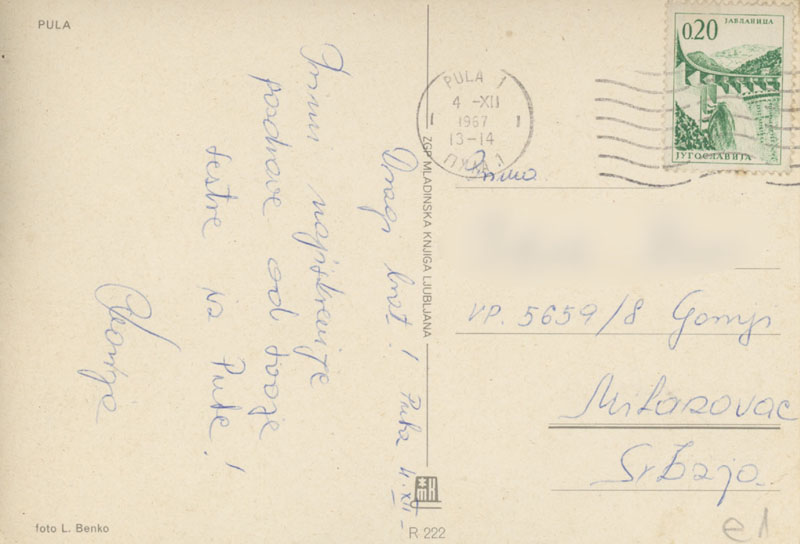 PULA
Dragi brat! Pula 4.XII-
Primi najsrdačnije
pozdrave od tvoje
sestre iz Pule!
foto L. Benko
ZGP MLADINSKA KNJIGA LJUBLJANA
mk
R 222
PULA 1
4 -XII
1967
13-14
ПУЛА 1
0.20
ЈАБЛАНИЦА
ЈУГОСЛАВИЈА
Prima
VP. 5659/8 Gornji
Milanovac
Srbija
e1